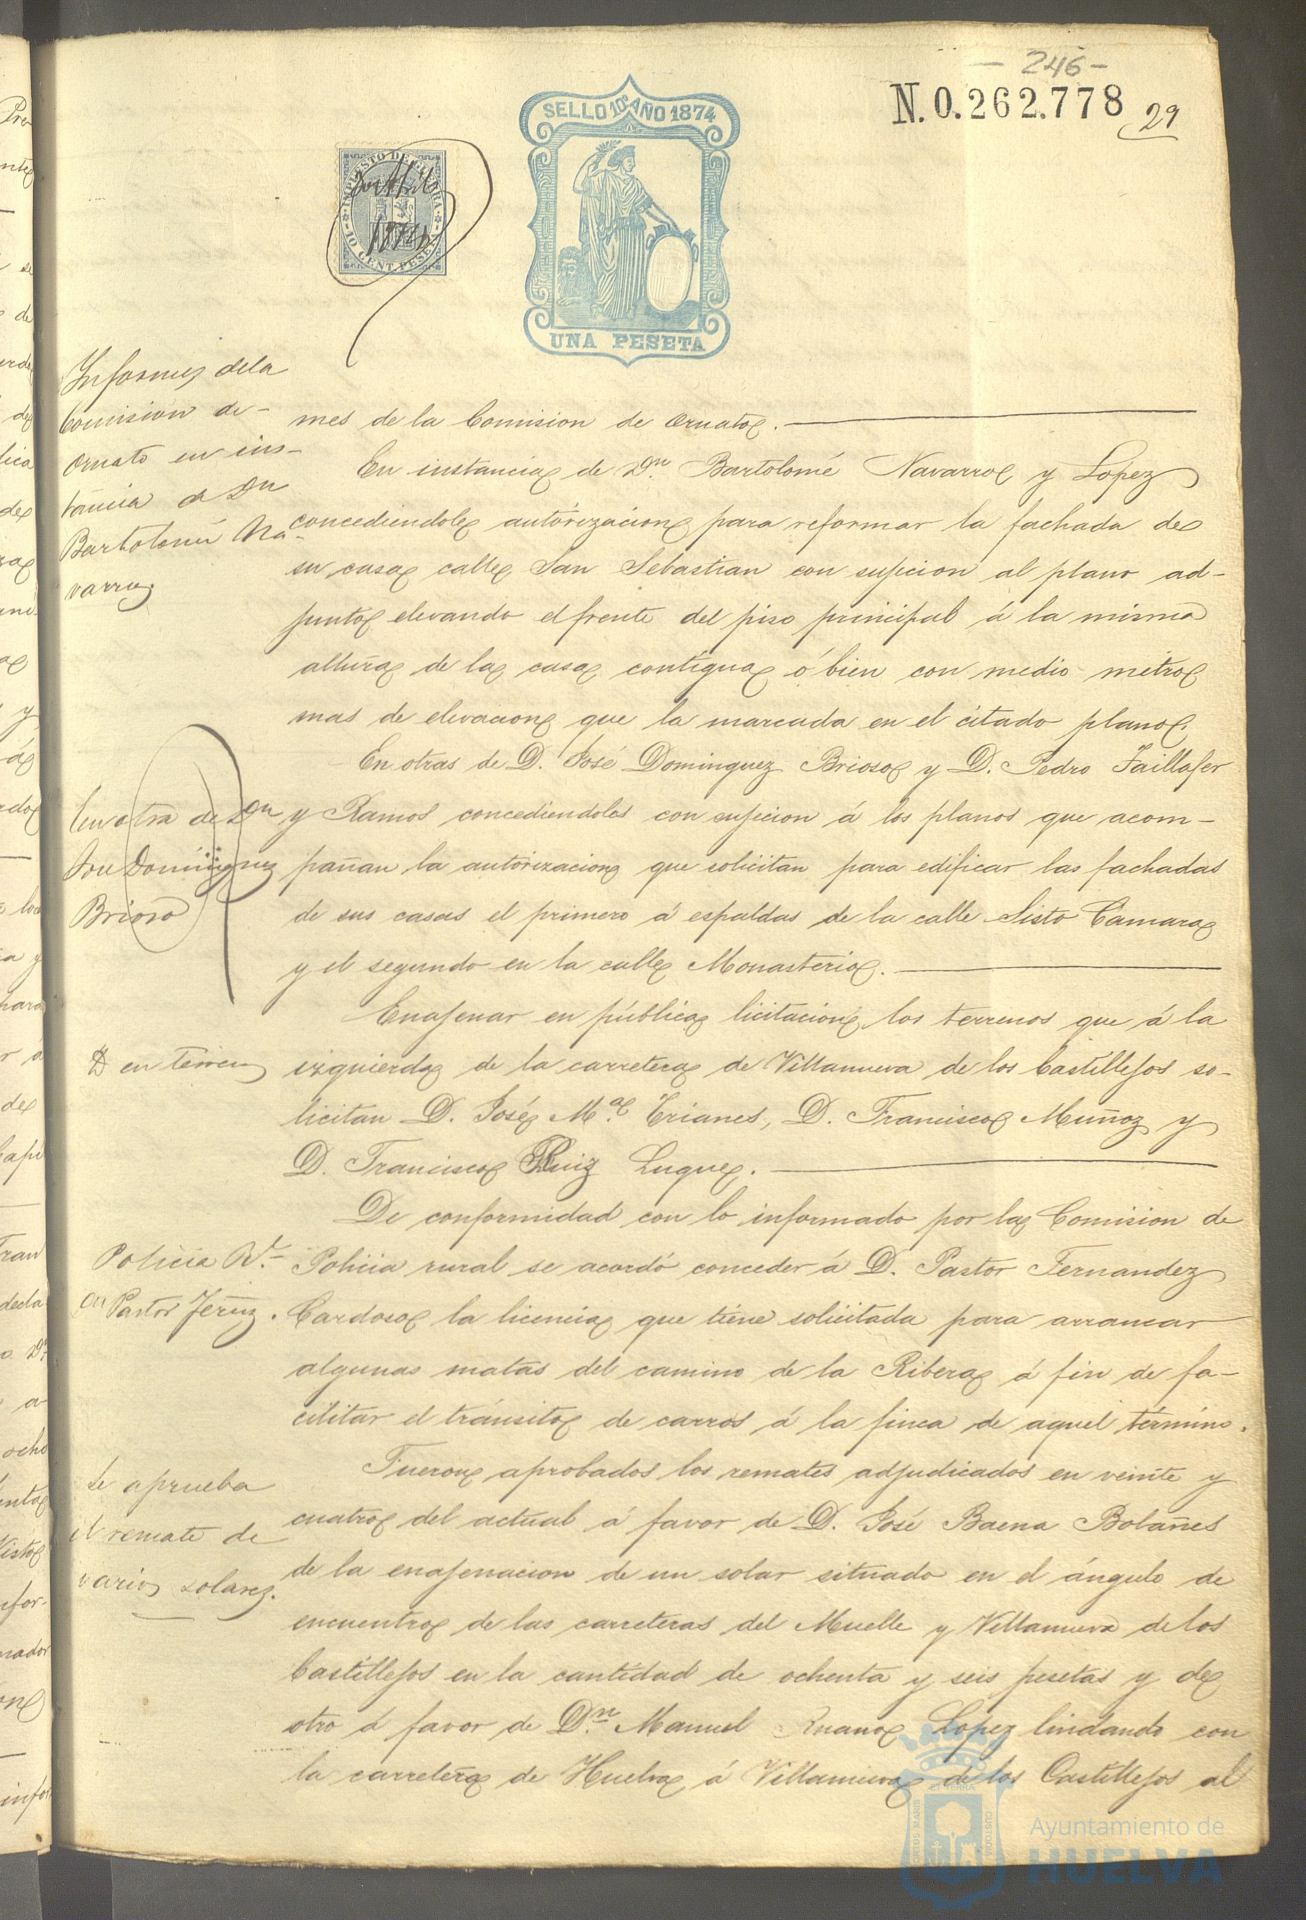 - 246 -
N. 0.262.778
29
SELLO 10º AÑO 1874
IMPUESTO DE GUERRA
10 CENT. PESETA
UNA PESETA
Informes dela
Comision de
Ornato en ins-
tancia de Dn
Bartolomé Na-
varro
mes de la Comision de Ornato.
En instancia de Dn. Bartolomé Navarro y Lopez
concediendole autorizacion para reformar la fachada de
su casa calle San Sebastian con sujicion al plano ad-
junto elevando el frente del piso principal á la misma
altura de la casa contigua ó bien con medio metro
mas de elevacion que la marcada en el citado plano.
En otras de D. José Dominguez Brioso y D. Pedro Faillafer
y Ramos concediendoles con sujicion á los planos que acom-
pañan la autorizacion que solicitan para edificar las fachadas
de sus casas el primero á espaldas de la calle Sisto Cámara
y el segundo en la calle Monasterio.
En otra de Dn
José Dominguez
Brioso
Enajenar en pública licitacion los terrenos que á la
izquierda de la carretera de Villanueva de los Castillejos so-
licitan D. José Mª Trianes, D. Francisco Muñoz y
D. Francisco Ruiz Luque.
en terreno
De conformidad con lo informado por la Comision de
Policia rural se acordó conceder á D. Pastor Fernandez
Cardoso la licencia que tiene solicitada para arrancar
algunas matas del camino de la Ribera á fin de fa-
cilitar el tránsito de carros á la finca de aquel término.
Policia Rl.
Pastor Ferñz.
Fueron aprobados los remates adjudicados en veinte y
cuatro del actual á favor de D. José Baena Bolañes
de la enajenacion de un solar situado en el ángulo de
encuentro de las carreteras del Muelle y Villanueva de los
Castillejos en la cantidad de ochenta y seis pesetas y de
otro á favor de Dn. Manuel Ruano Lopez lindando con
la carretera de Huelva á Villanueva de los Castillejos al
Se aprueba
el remate de
varios solares.
Ayuntamiento de
HUELVA